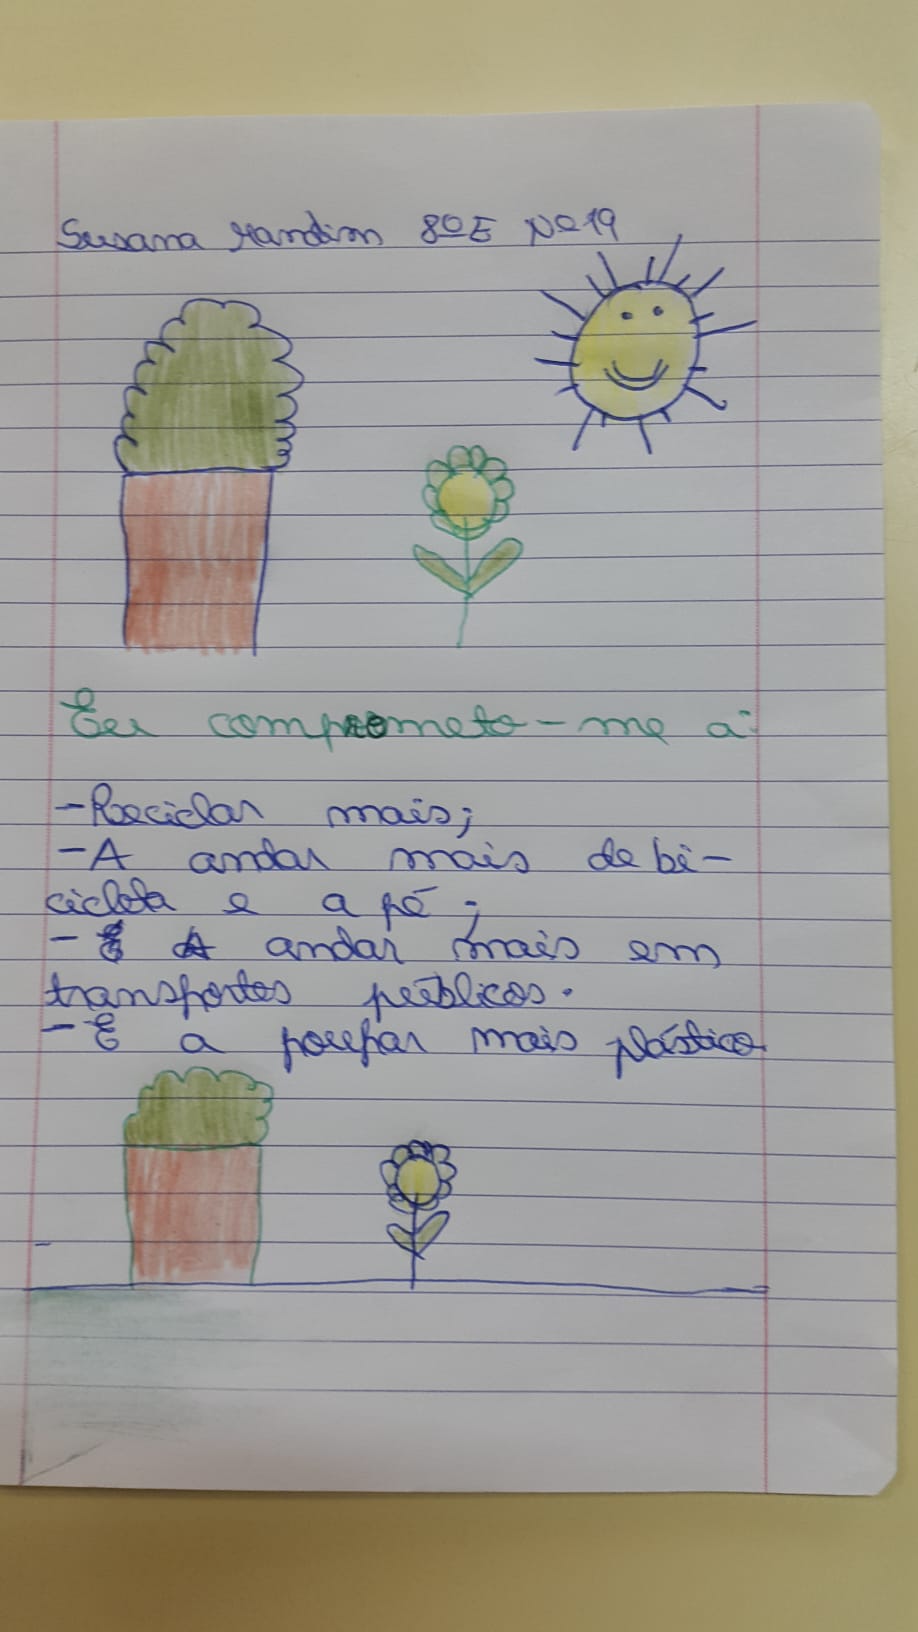 Susana Mandim 8ºE Nº19
Eu comprometo-me a:
-Reciclar mais;
-A andar mais de bi-
cicleta e a pé;
- A andar mais em
transportes públicos.
-E a poupar mais plástico